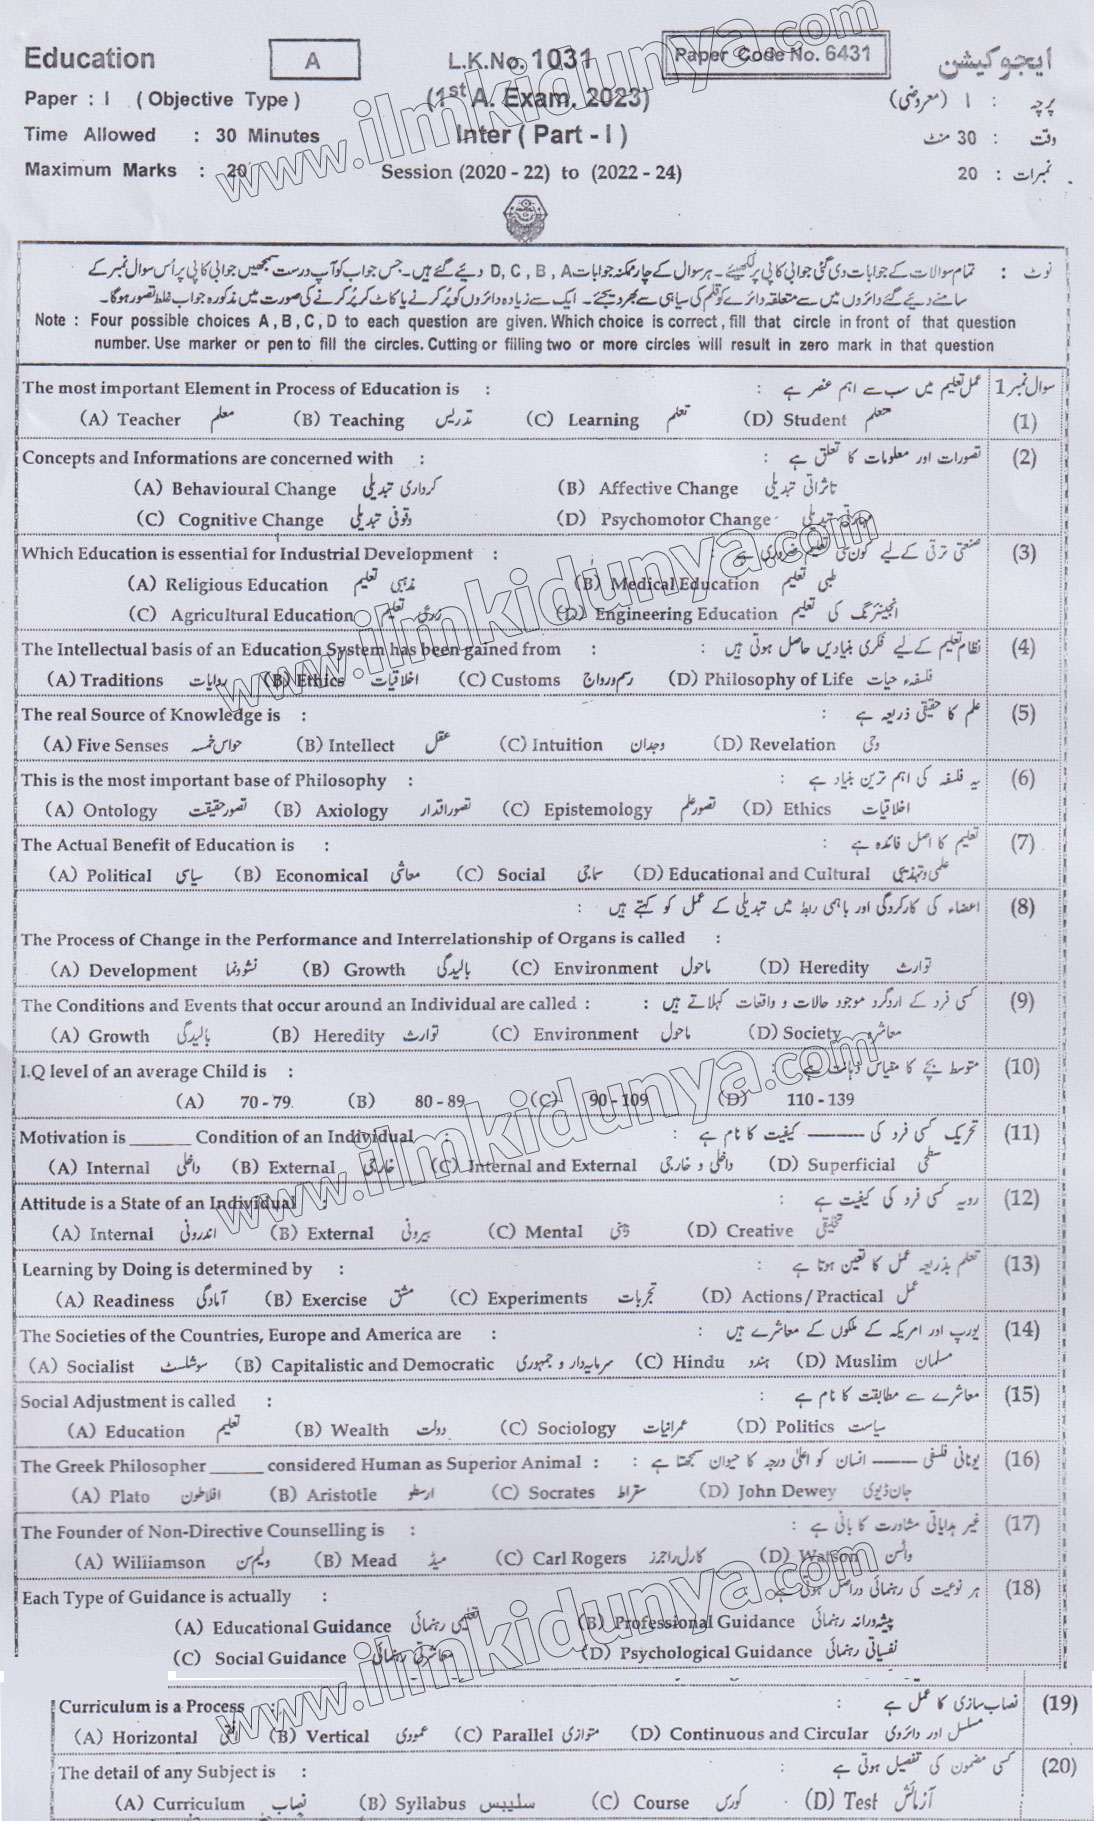 Education A L.K.No. 1031 Paper Code No. 6431 ایجوکیشن
Paper : I ( Objective Type ) (1st A. Exam. 2023) پرچہ : I (معروضی)
Time Allowed : 30 Minutes Inter ( Part - I ) وقت : 30 منٹ
Maximum Marks : 20 Session (2020 - 22) to (2022 - 24) نمبرات : 20
نوٹ : تمام سوالات کے جوابات دی گئی جوابی کاپی پر لکھیئے ۔ ہر سوال کے چار ممکنہ جوابات D, C, B, A دیے گئے ہیں۔ جس جواب کو آپ درست سمجھیں جوابی کاپی پر اُس سوال نمبر کے
سامنے دیے گئے دائروں میں سے متعلقہ دائرے کو قلم کی سیاہی سے بھر دیجئے۔ ایک سے زیادہ دائروں کو پُر کرنے یا کاٹ کر پُر کرنے کی صورت میں مذکورہ جواب غلط تصور ہوگا۔
Note : Four possible choices A , B , C , D to each question are given. Which choice is correct , fill that circle in front of that question
number. Use marker or pen to fill the circles. Cutting or filling two or more circles will result in zero mark in that question
The most important Element in Process of Education is : عمل تعلیم میں سب سے اہم عنصر ہے : سوال نمبر 1
(A) Teacher معلم (B) Teaching تدریس (C) Learning تعلم (D) Student متعلم (1)
Concepts and Informations are concerned with : تصورات اور معلومات کا تعلق ہے : (2)
(A) Behavioural Change کرداری تبدیلی (B) Affective Change تاثراتی تبدیلی
(C) Cognitive Change وقوفی تبدیلی (D) Psychomotor Change مہارتی تبدیلی
Which Education is essential for Industrial Development : صنعتی ترقی کے لیے کون سی تعلیم ضروری ہے : (3)
(A) Religious Education مذہبی تعلیم (B) Medical Education طبی تعلیم
(C) Agricultural Education زرعی تعلیم (D) Engineering Education انجینئرنگ کی تعلیم
The Intellectual basis of an Education System has been gained from : نظام تعلیم کے لیے فکری بنیادیں حاصل ہوتی ہیں : (4)
(A) Traditions روایات (B) Ethics اخلاقیات (C) Customs رسم و رواج (D) Philosophy of Life فلسفہء حیات
The real Source of Knowledge is : علم کا حقیقی ذریعہ ہے : (5)
(A) Five Senses حواس خمسہ (B) Intellect عقل (C) Intuition وجدان (D) Revelation وحی
This is the most important base of Philosophy : یہ فلسفہ کی اہم ترین بنیاد ہے : (6)
(A) Ontology تصور حقیقت (B) Axiology تصور اقدار (C) Epistemology تصور علم (D) Ethics اخلاقیات
The Actual Benefit of Education is : تعلیم کا اصل فائدہ ہے : (7)
(A) Political سیاسی (B) Economical معاشی (C) Social سماجی (D) Educational and Cultural علمی و تہذیبی
اعضاء کی کارکردگی اور باہمی ربط میں تبدیلی کے عمل کو کہتے ہیں : (8)
The Process of Change in the Performance and Interrelationship of Organs is called :
(A) Development نشوونما (B) Growth بالیدگی (C) Environment ماحول (D) Heredity توارث
The Conditions and Events that occur around an Individual are called : کسی فرد کے اردگرد موجود حالات و واقعات کہلاتے ہیں : (9)
(A) Growth بالیدگی (B) Heredity توارث (C) Environment ماحول (D) Society معاشرہ
I.Q level of an average Child is : متوسط بچے کا مقیاس ذہانت ہے : (10)
(A) 70 - 79 (B) 80 - 89 (C) 90 - 109 (D) 110 - 139
Motivation is ______ Condition of an Individual : تحریک کسی فرد کی ------ کیفیت کا نام ہے : (11)
(A) Internal داخلی (B) External خارجی (C) Internal and External داخلی و خارجی (D) Superficial سطحی
Attitude is a State of an Individual : رویہ کسی فرد کی کیفیت ہے : (12)
(A) Internal اندرونی (B) External بیرونی (C) Mental ذہنی (D) Creative تخلیقی
Learning by Doing is determined by : تعلم بذریعہ عمل کا تعین ہوتا ہے : (13)
(A) Readiness آمادگی (B) Exercise مشق (C) Experiments تجربات (D) Actions / Practical عمل
The Societies of the Countries, Europe and America are : یورپ اور امریکہ کے ملکوں کے معاشرے ہیں : (14)
(A) Socialist سوشلسٹ (B) Capitalistic and Democratic سرمایہ دار و جمہوری (C) Hindu ہندو (D) Muslim مسلمان
Social Adjustment is called : معاشرے سے مطابقت کا نام ہے : (15)
(A) Education تعلیم (B) Wealth دولت (C) Sociology عمرانیات (D) Politics سیاست
The Greek Philosopher ______ considered Human as Superior Animal : یونانی فلسفی ------ انسان کو اعلیٰ درجہ کا حیوان سمجھتا ہے : (16)
(A) Plato افلاطون (B) Aristotle ارسطو (C) Socrates سقراط (D) John Dewey جان ڈیوی
The Founder of Non-Directive Counselling is : غیر ہدایاتی مشاورت کا بانی ہے : (17)
(A) Wiliiamson ولیم سن (B) Mead میڈ (C) Carl Rogers کارل راجرز (D) Watson واٹسن
Each Type of Guidance is actually : ہر نوعیت کی رہنمائی دراصل ہوتی ہے : (18)
(A) Educational Guidance تعلیمی رہنمائی (B) Professional Guidance پیشہ ورانہ رہنمائی
(C) Social Guidance معاشرتی رہنمائی (D) Psychological Guidance نفسیاتی رہنمائی
Curriculum is a Process : نصاب سازی کا عمل ہے : (19)
(A) Horizontal افقی (B) Vertical عمودی (C) Parallel متوازی (D) Continuous and Circular مسلسل اور دائروی
The detail of any Subject is : کسی مضمون کی تفصیل ہوتی ہے : (20)
(A) Curriculum نصاب (B) Syllabus سلیبس (C) Course کورس (D) Test آزمائش
www.ilmkidunya.com
www.ilmkidunya.com
www.ilmkidunya.com
www.ilmkidunya.com